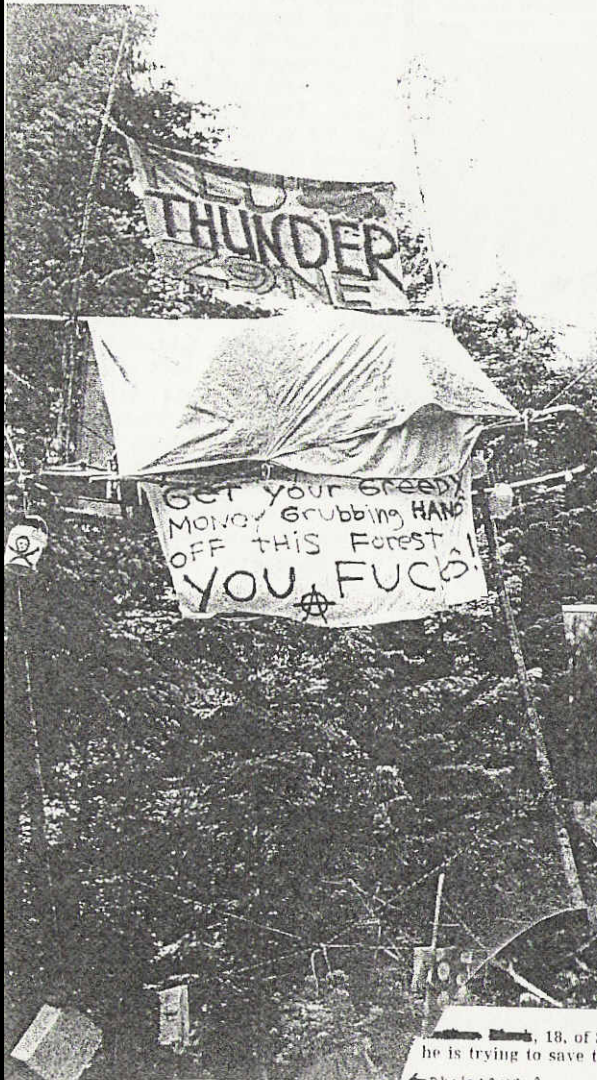 RED
THUNDER
ZONE
GET YOUR GREEDY
MONEY GRUBBING HAND
OFF THIS FOREST
YOU FUCS!
, 18, of
he is trying to save t